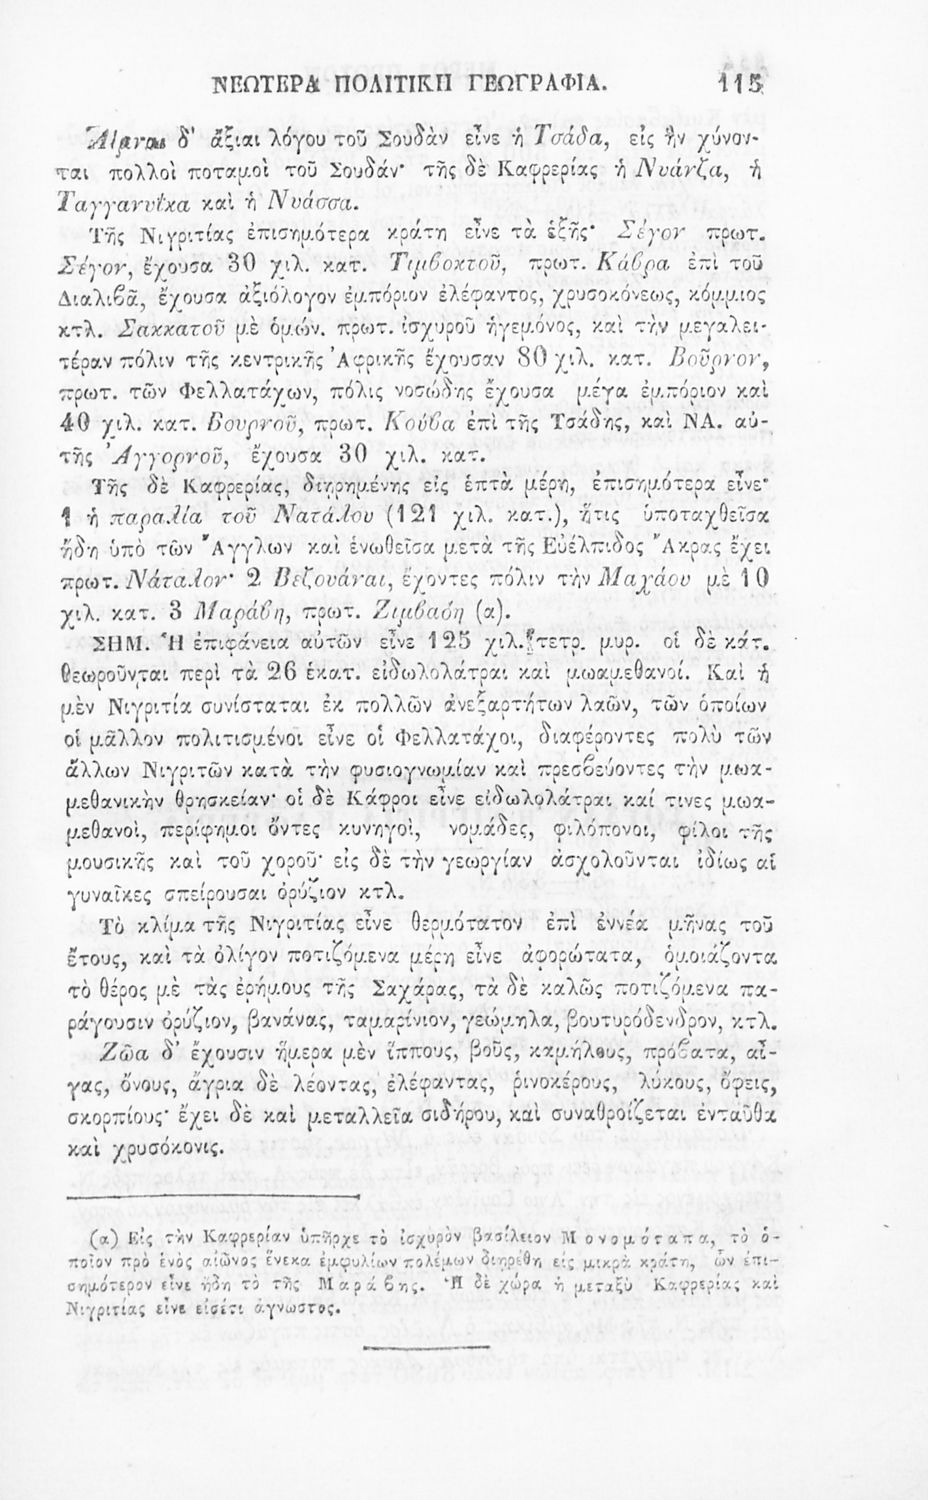 ΝΕΩΤΕΡΑ ΠΟΛΙΤΙΚΗ ΓΕΩΓΡΑΦΙΑ. 115
Λίμναι δ' ἄξιαι λόγου τοῦ Σουδὰν εἶνε ἡ Τσάδα, εἰς ἣν χύνον-
ται πολλοὶ ποταμοὶ τοῦ Σουδάν· τῆς δὲ Καφρερίας ἡ Νυάνζα, ἡ
Ταγγανυΐκα καὶ ἡ Νυάσσα.
Τῆς Νιγριτίας ἐπισημότερα κράτη εἶνε τὰ ἑξῆς· Σέγον πρωτ.
Σέγον, ἔχουσα 30 χιλ. κατ. Τιμβοκτοῦ, πρωτ. Κάβρα ἐπὶ τοῦ
Διαλιβᾶ, ἔχουσα ἀξιόλογον ἐμπόριον ἐλέφαντος, χρυσοκόνεως, κόμμιος
κτλ. Σακκατοῦ μὲ ὁμών. πρωτ. ἰσχυροῦ ἡγεμόνος, καὶ τὴν μεγαλει-
τέραν πόλιν τῆς κεντρικῆς Ἀφρικῆς ἔχουσαν 80 χιλ. κατ. Βοῦρνον,
πρωτ. τῶν Φελλατάχων, πόλις νοσώδης ἔχουσα μέγα ἐμπόριον καὶ
40 χιλ. κατ. Βουρνοῦ, πρωτ. Κούβα ἐπὶ τῆς Τσάδης, καὶ ΝΑ. αὐ-
τῆς Ἀγγορνοῦ, ἔχουσα 30 χιλ. κατ.
Τῆς δὲ Καφρερίας, διῃρημένης εἰς ἑπτὰ μέρη, ἐπισημότερα εἶνε·
1 ἡ παραλία τοῦ Νατάλου (121 χιλ. κατ.), ἥτις ὑποταχθεῖσα
ἤδη ὑπὸ τῶν Ἄγγλων καὶ ἑνωθεῖσα μετὰ τῆς Εὐέλπιδος Ἄκρας ἔχει
πρωτ. Νάταλον· 2 Βεζουάναι, ἔχοντες πόλιν τὴν Μαχάου μὲ 10
χιλ. κατ. 3 Μαράβη, πρωτ. Ζιμβαόη (α).
ΣΗΜ. Ἡ ἐπιφάνεια αὐτῶν εἶνε 125 χιλ. τετρ. μυρ. οἱ δὲ κάτ.
θεωροῦνται περὶ τὰ 26 ἑκατ. εἰδωλολάτραι καὶ μωαμεθανοί. Καὶ ἡ
μὲν Νιγριτία συνίσταται ἐκ πολλῶν ἀνεξαρτήτων λαῶν, τῶν ὁποίων
οἱ μᾶλλον πολιτισμένοι εἶνε οἱ Φελλατάχοι, διαφέροντες πολὺ τῶν
ἄλλων Νιγριτῶν κατὰ τὴν φυσιογνωμίαν καὶ πρεσβεύοντες τὴν μωα-
μεθανικὴν θρησκείαν· οἱ δὲ Κάφροι εἶνε εἰδωλολάτραι καί τινες μωα-
μεθανοὶ, περίφημοι ὄντες κυνηγοὶ, νομάδες, φιλόπονοι, φίλοι τῆς
μουσικῆς καὶ τοῦ χοροῦ· εἰς δὲ τὴν γεωργίαν ἀσχολοῦνται ἰδίως αἱ
γυναῖκες σπείρουσαι ὀρύζιον κτλ.
Τὸ κλίμα τῆς Νιγριτίας εἶνε θερμότατον ἐπὶ ἐννέα μῆνας τοῦ
ἔτους, καὶ τὰ ὀλίγον ποτιζόμενα μέρη εἶνε ἀφορώτατα, ὁμοιάζοντα
τὸ θέρος μὲ τὰς ἐρήμους τῆς Σαχάρας, τὰ δὲ καλῶς ποτιζόμενα πα-
ράγουσιν ὀρύζιον, βανάνας, ταμαρίνιον, γεώμηλα, βουτυρόδενδρον, κτλ.
Ζῶα δ' ἔχουσιν ἥμερα μὲν ἵππους, βοῦς, καμήλους, πρόβατα, αἶ-
γας, ὄνους, ἄγρια δὲ λέοντας, ἐλέφαντας, ῥινοκέρους, λύκους, ὄφεις,
σκορπίους· ἔχει δὲ καὶ μεταλλεῖα σιδήρου, καὶ συναθροίζεται ἐνταῦθα
καὶ χρυσόκονις.
(α) Εἰς τὴν Καφρερίαν ὑπῆρχε τὸ ἰσχυρὸν βασίλειον Μονομόταπα, τὸ ὁ-
ποῖον πρὸ ἑνὸς αἰῶνος ἕνεκα ἐμφυλίων πολέμων διῃρέθη εἰς μικρὰ κράτη, ὧν ἐπι-
σημότερον εἶνε ἤδη τὸ τῆς Μαράβης. Ἡ δὲ χώρα ἡ μεταξὺ Καφρερίας καὶ
Νιγριτίας εἶνε εἰσέτι ἄγνωστος.